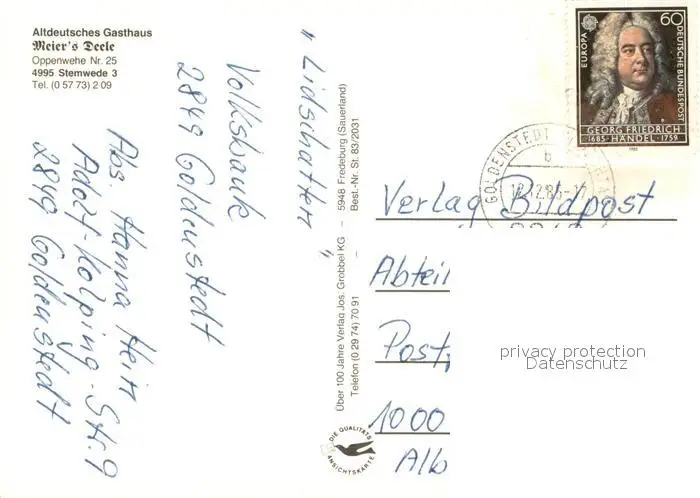 Altdeutsches Gasthaus
Meier's Deele
Oppenweher Nr. 25
4995 Stemwede 3
Tel. (0 57 73) 2 09
"Lidschatten"
Volksbank
2849 Goldenstedt
Abs. Hanna Heil
Adolf-Kolping-Str. 9
2849 Goldenstedt
Über 100 Jahre Verlag Jos. Grobbel KG – 5948 Fredeburg (Sauerland)
Telefon (0 29 74) 70 91 – Best.-Nr. St. 83/2031
DIE QUALITÄTS
ANSICHTSKARTE
EUROPA
60
DEUTSCHE BUNDESPOST
GEORG FRIEDRICH
1685 · HÄNDEL · 1759
GOLDENSTEDT
b
Verlag Bildpost
Abteil
Post,
1000
Alb
privacy protection
Datenschutz